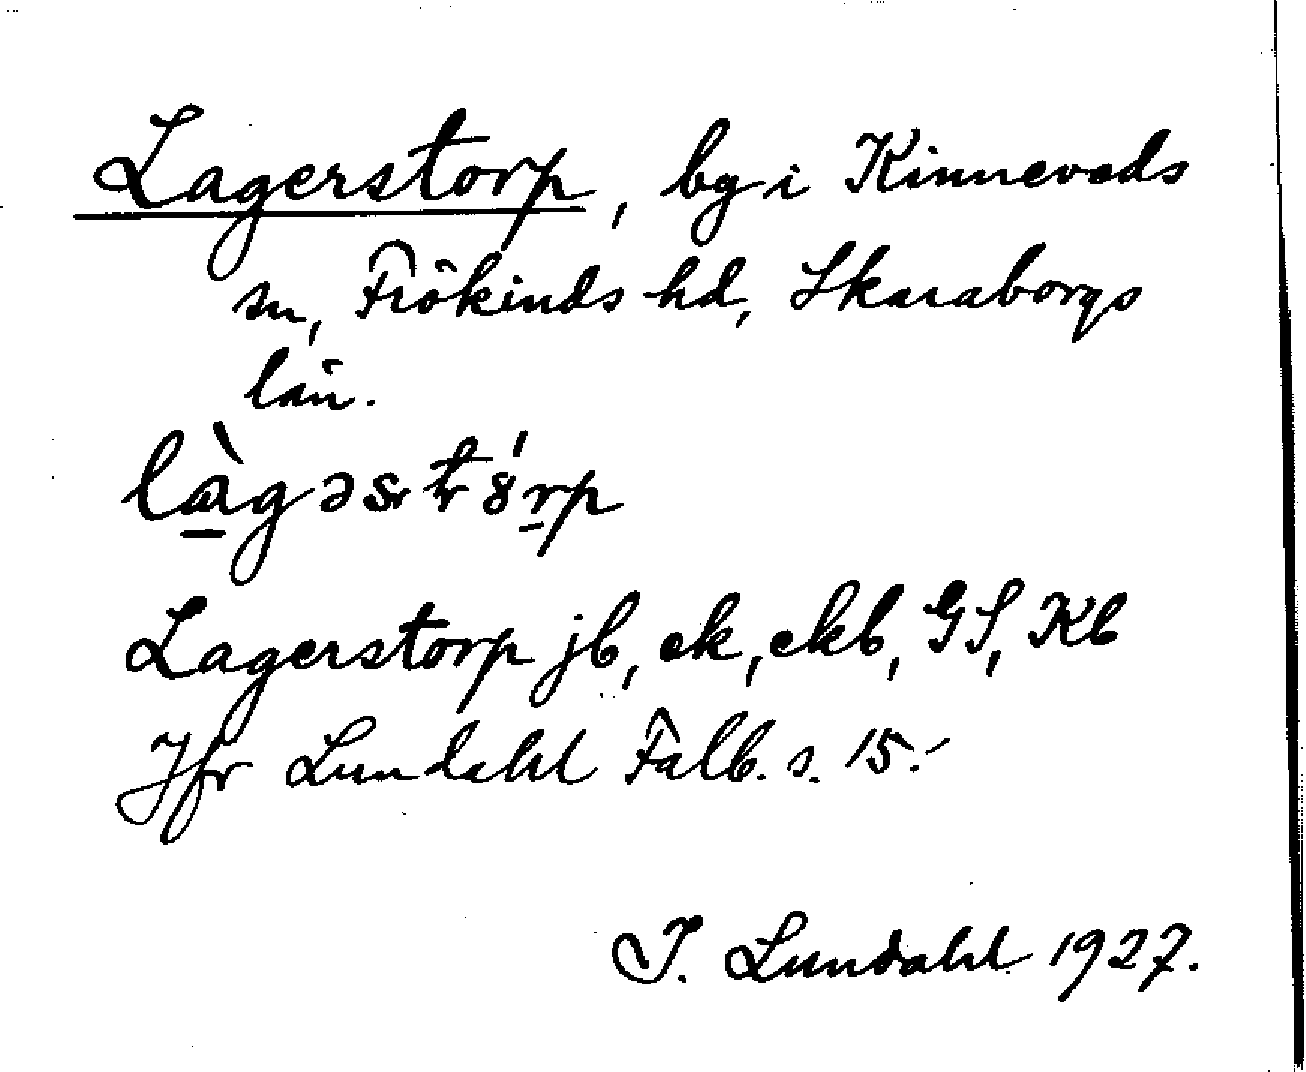 Lagerstorp, bg i Kinneveds
sn, Frökinds hd, Skaraborgs
län.
Lagerstorp jb, ek, ekb, GS, Kb
Jfr Lundahl Falb. s. 15.
I. Lundahl 1927.